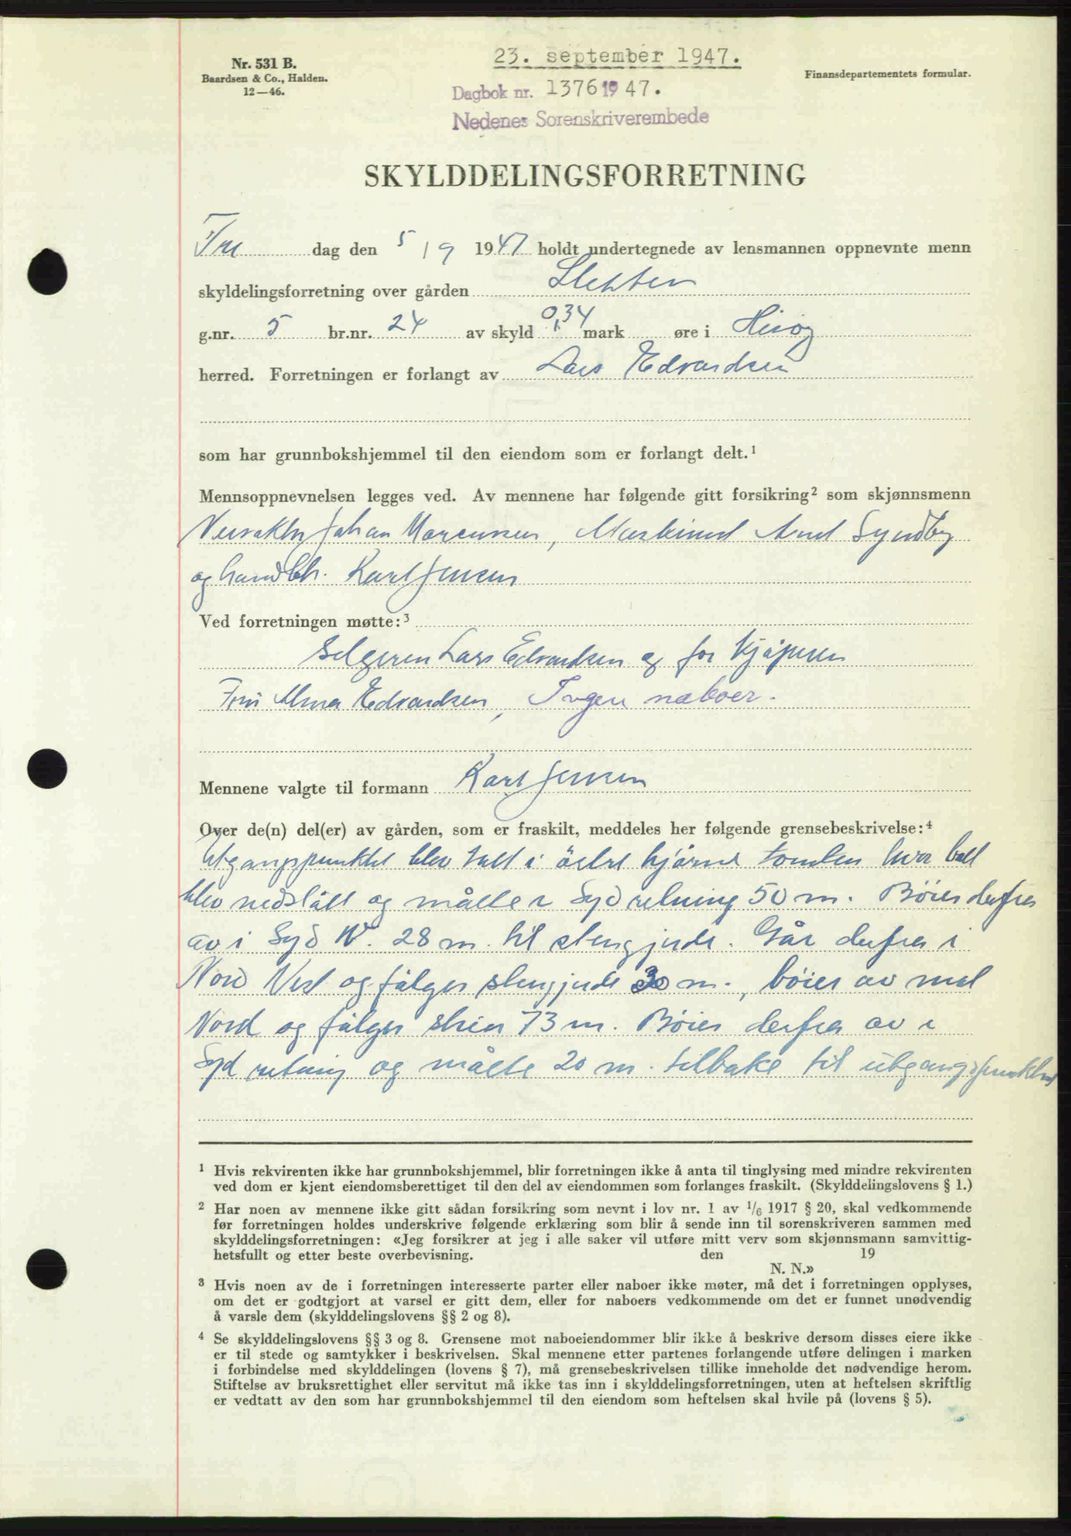 Nr. 531 B.
Baardsen & Co., Halden.
12—46.
23. september 1947.
Dagbok nr. 1376 1947.
Nedenes Sorenskriverembede
Finansdepartementets formular.
SKYLDDELINGSFORRETNING
Fre dag den 5/9 1947 holdt undertegnede av lensmannen oppnevnte menn
skyldelingsforretning over gården Sletten
g.nr. 5 br.nr. 24 av skyld 0,34 mark øre i Hisøy
herred. Forretningen er forlangt av Lars Edvardsen
som har grunnbokshjemmel til den eiendom som er forlangt delt.¹
Mennsoppnevnelsen legges ved. Av mennene har følgende gitt forsikring² som skjønnsmenn
Johan Marcussen, Maskinist Syndby
og Karl Jensen
Ved forretningen møtte:³
Selgeren Lars Edvardsen og for kjøperen
Fru Alma Edvardsen, Ingen naboer.
Mennene valgte til formann Karl Jensen
Over de(n) del(er) av gården, som er fraskilt, meddeles her følgende grensebeskrivelse:⁴
Utgangspunktet blev tatt i östre hjörne tomten hvor bolt
blev nedslått og målte i Syd retning 50 m. Böier derfra
av i Syd V. 28 m. til stengjerde. Går derfra i
Nord Vest og fölger stengjerde 30 m., böier av mot
Nord og fölger 73 m. Böier derfra av i
Syd retning og målte 20 m. tilbake til utgangspunktet
¹ Hvis rekvirenten ikke har grunnbokshjemmel, blir forretningen ikke å anta til tinglysing med mindre rekvirenten
ved dom er kjent eiendomsberettiget til den del av eiendommen som forlanges fraskilt. (Skylddelingslovens § 1.)
² Har noen av mennene ikke gitt sådan forsikring som nevnt i lov nr. 1 av ¹/₆ 1917 § 20, skal vedkommende
før forretningen holdes underskrive følgende erklæring som blir å sende inn til sorenskriveren sammen med
skylddelingsforretningen: «Jeg forsikrer at jeg i alle saker vil utføre mitt verv som skjønnsmann samvittig-
hetsfullt og etter beste overbevisning. den 19
N. N.»
³ Hvis noen av de i forretningen interesserte parter eller naboer ikke møter, må det i forretningen opplyses,
om det er godtgjort at varsel er gitt dem, eller for naboers vedkommende om det er funnet unødvendig
å varsle dem (skylddelingslovens §§ 2 og 8).
⁴ Se skylddelingslovens §§ 3 og 8. Grensene mot naboeiendommer blir ikke å beskrive dersom disses eiere ikke
er til stede og samtykker i beskrivelsen. Skal mennene etter partenes forlangende utføre delingen i marken
i forbindelse med skylddelingen (lovens § 7), må grensebeskrivelsen tillike inneholde det nødvendige herom.
Stiftelse av bruksrettighet eller servitut må ikke tas inn i skylddelingsforretningen, uten at heftelsen skriftlig
er vedtatt av den som har grunnbokshjemmel til den eiendom som heftelsen skal hvile på (lovens § 5).